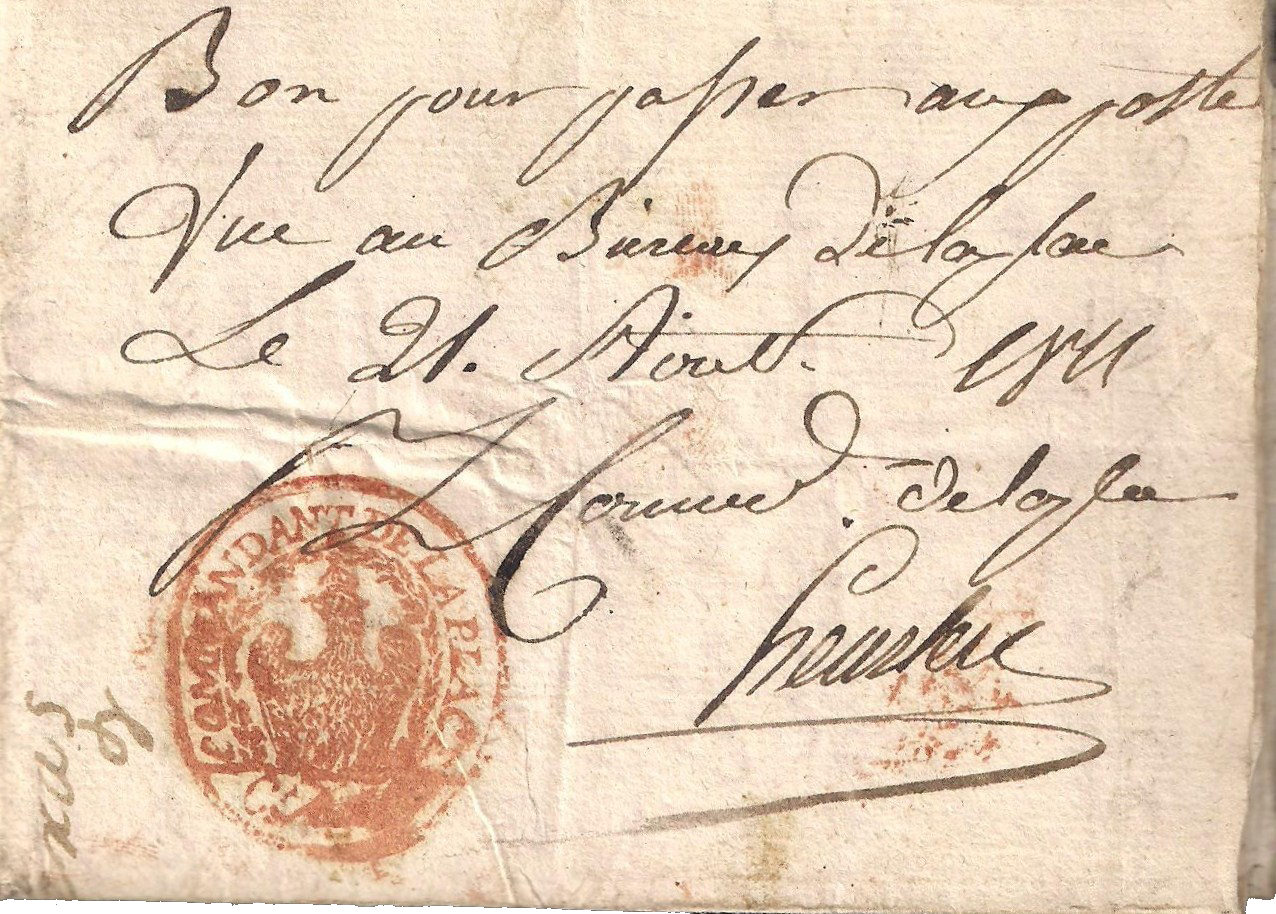 Bon pour passer aux poste
Vue au Bureaux De la place
Le 21. Aout. 1811
Le Command. De la place
COMMANDANT DE LA PLACE